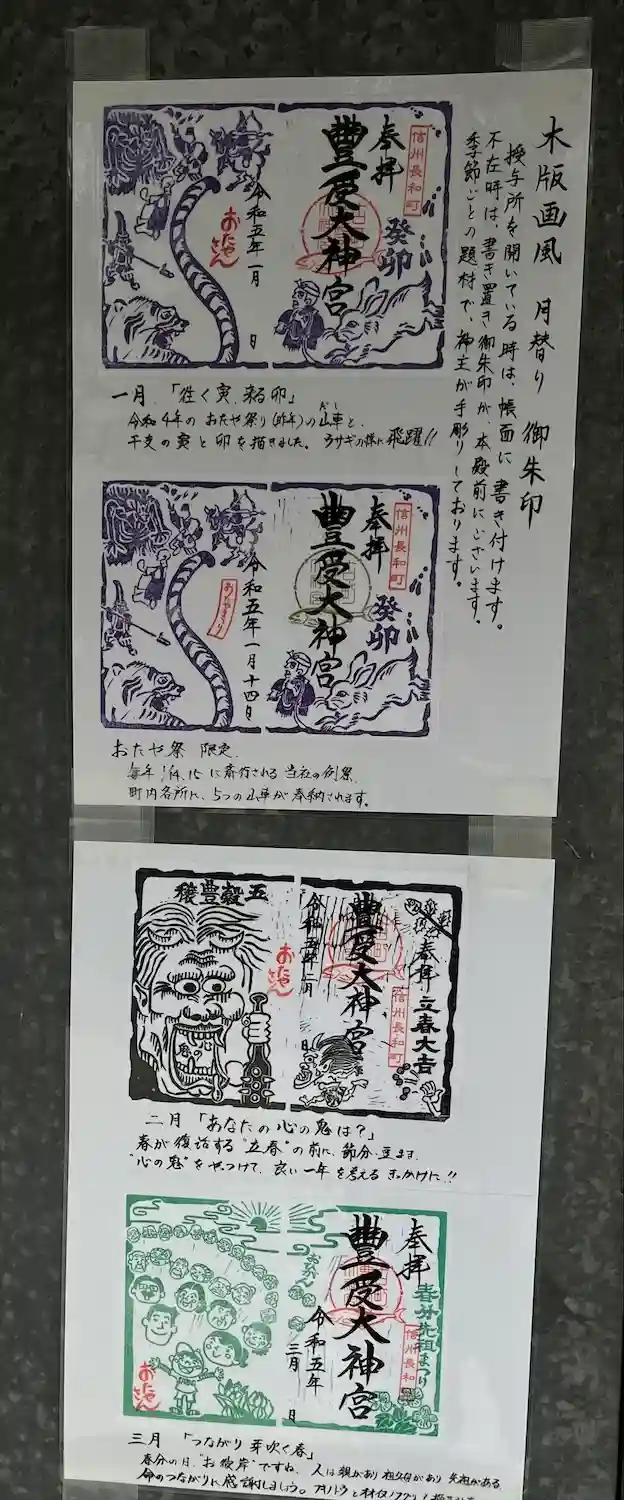 木版画風 月替り 御朱印
授与所を開いている時は、帳面に書き付けます。
不在時は、書き置き御朱印が、本殿前にございます。
季節ごとの題材で、神主が手彫りしております。
奉拝
信州長和町
癸卯
豊受大神宮
令和五年一月 日
おたやさん
一月.「往く寅、来る卯」
令和4年の おたや祭り(昨年)の山車と、
だし
干支の寅と卯を描きました。ウサギの様に飛躍!!
奉拝
信州長和町
癸卯
豊受大神宮
令和五年一月十四日
おたや祭 限定.
毎年1/14、15に斎行される 当社の例祭.
町内各所に、5つの山車が奉納されます。
立春大吉
奉拝
信州長和町
豊受大神宮
令和五年二月 日
五穀豊穣
おたやさん
心の鬼
二月「あなたの心の鬼は?」
春が復活する“立春”の前に、節分・豆まき.
“心の鬼”をやっつけて、良い一年を考えるきっかけに!!
奉拝
春分先祖まつり
信州長和町
豊受大神宮
令和五年三月 日
おひがん
おたやさん
三月 「つながり芽吹く春」
春分の日、“お彼岸”ですね. 人は親があり 祖父母があり 先祖がある.
命のつながりに感謝しましょう。